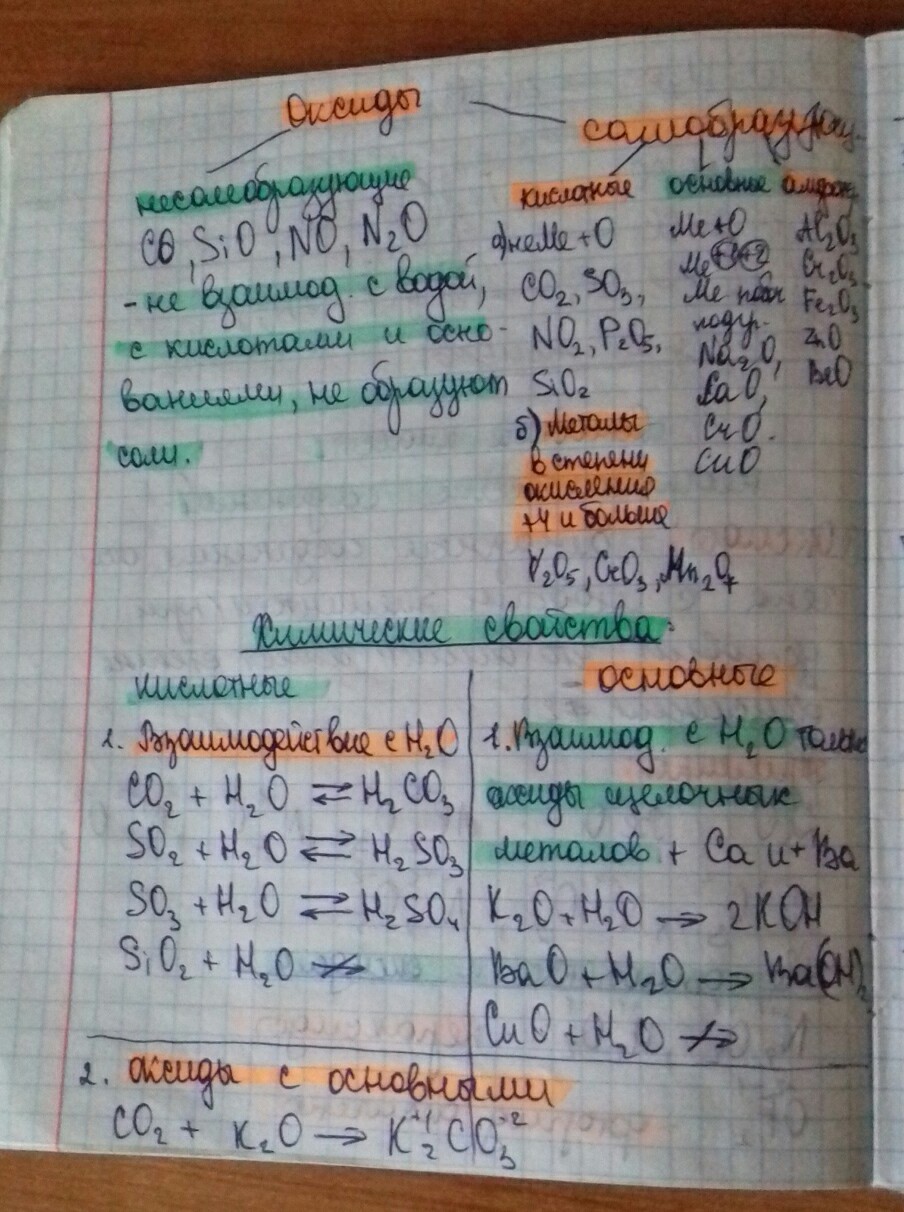 Оксиды
солеобразующ.
несолеобразующие
CO, SiO, NO, N₂O
- не взаимод. с водой,
с кислотами и осно-
ваниями, не образуют
соли.
кислотные
а) неМе + O
CO₂, SO₃,
NO₂, P₂O₅,
SiO₂
б) Металы
в степени
окисления
+4 и больше
V₂O₅, CrO₃, Mn₂O₇
основные
Me + O
Me +1 +2
Me побч
подгр.
Na₂O,
BaO,
CrO.
CuO
амфот.
Al₂O₃
Cr₂O₃
Fe₂O₃
ZnO
BeO
Химические свойства:
кислотные
1. Взаимодействие с H₂O
CO₂ + H₂O ⇄ H₂CO₃
SO₂ + H₂O ⇄ H₂SO₃
SO₃ + H₂O ⇄ H₂SO₄
SiO₂ + H₂O ↛
- основные
1. Взаимод. с H₂O только
оксиды щелочных
металов + Ca и + Ba
K₂O + H₂O → 2KOH
BaO + H₂O → Ba(OH)₂
CuO + H₂O ↛
2. оксиды с основными
CO₂ + K₂O → K₂⁺¹CO₃⁻²